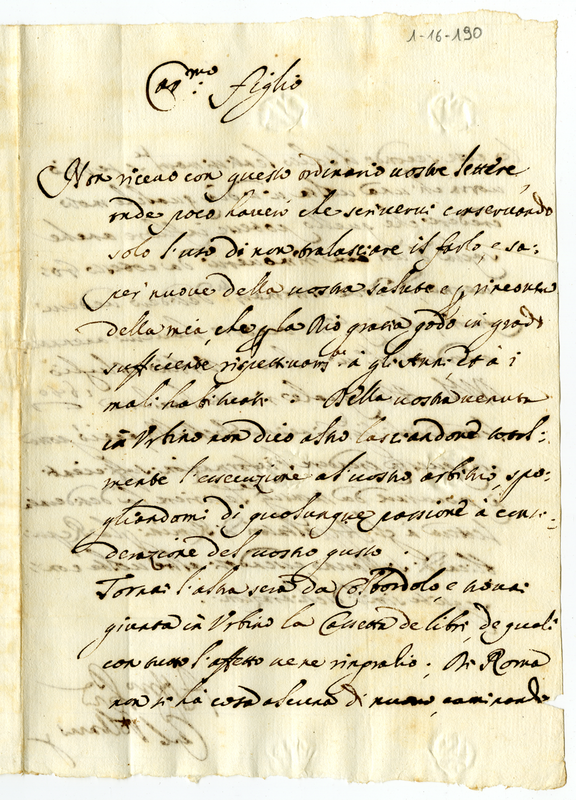 1-16-190
Car.mo figlio
Non riceuo con questo ordinario uostre lettere,
onde poco hauerò che scriuerui conseruando
solo l'uso di non tralasciare il farlo, e sa:
per nuoue della uostra salute e
della mia, che la Dio gratia godo in grado
sufficiente à gli Anni et à i
mali habituati. Della uostra uenuta
in Urbino non dico altro lasciandone total:
mente l'esecuzione al uostro arbitrio, spo:
gliandomi di qualunque passione à consi:
derazione del uostro gusto.
Tornai l'altra sera da Colbordolo, e trouai
giunta in Urbino la Cassetta de libri, de quali
con tutto l'affetto ue ne ringratio. Di Roma
non si hà cosa alcuna di nuouo, caminando